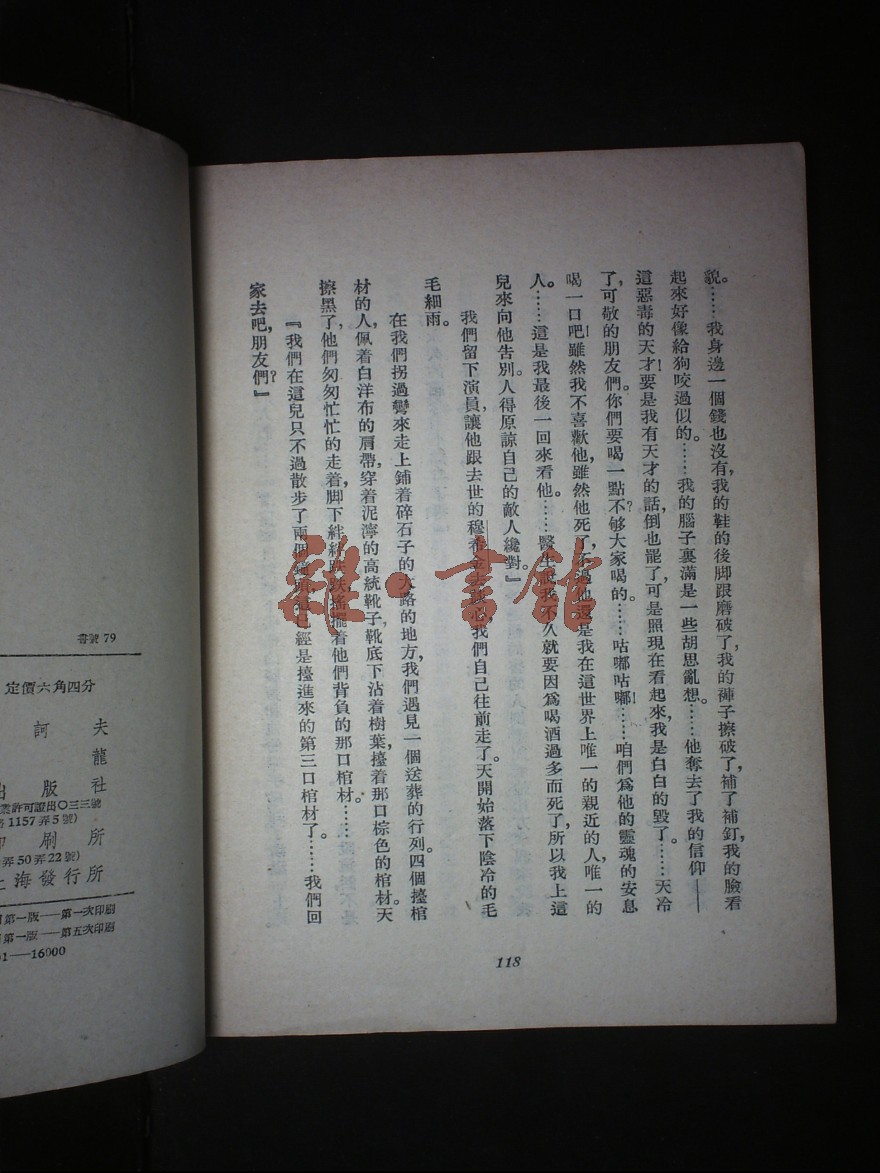 貌。……我身邊一個錢也沒有，我的鞋的後脚跟磨破了，我的褲子擦破了，補了補釘，我的臉看
起來好像給狗咬過似的。……我的腦子裏滿是一些胡思亂想。……他奪去了我的信仰——
這惡毒的天才！要是我有天才的話，倒也罷了，可是照現在看起來，我是白白的毀了。……天冷
了，可敬的朋友們。你們要喝一點不？够大家喝的。……咕嘟咕嘟……咱們爲他的靈魂的安息
喝一口吧！雖然我不喜歡他，雖然他死了，不過他還是我在這世界上唯一的親近的人，唯一的
人。……這是我最後一回來看他。……醫生說我不久就要因爲喝酒過多而死了，所以我上這
兒來向他告別。人得原諒自己的敵人纔對。』
我們留下演員，讓他跟去世的穆希金去談心，我們自己往前走了。天開始落下陰冷的毛
毛細雨。
在我們拐過彎來走上鋪着碎石子的大路的地方，我們遇見一個送葬的行列。四個擡棺
材的人，佩着白洋布的肩帶，穿着泥濘的高統靴子，靴底下沾着樹葉，擡着那口棕色的棺材。天
擦黑了，他們匆匆忙忙的走着，脚下絆絆跌跌，搖擺着他們背負的那口棺材。……
『我們在這兒只不過散步了兩個鐘頭，這已經是擡進來的第三口棺材了。……我們回
家去吧，朋友們？』
118
書號 79
定價六角四分
訶夫
龍
出版社
業許可證出〇三三號
路1157弄5號)
印刷所
弄50弄22號)
上海發行所
第一版——第一次印刷
第一版——第五次印刷
01——16000
雜·書館